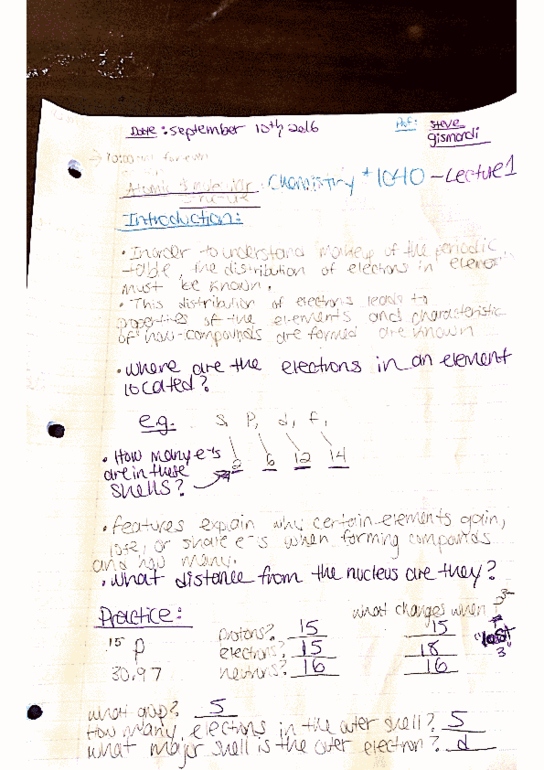 Date: September 10th 2016
Prof: Steve
gismondi
Chemistry *1040 - Lecture 1
Introduction:
• In order to understand makeup of the periodic
table, the distribution of electrons in
must be known.
• This distribution of electrons leads to
properties of the elements and characteristic
of how compounds are formed are known
• where are the electrons in an element
located?
e.g. s, p, d, f,
• How many e-s
are in these
shells?
2 6 12 14
• features explain why certain elements gain,
lose, or share e-s when forming compounds
and how many.
• what distance from the nucleus are they?
Practice:
what changes when P 3-
15 P
30.97
protons? 15 15
electrons? 15 18
neutrons? 16 16
"lost
3"
what group? 5
How many electrons in the outer shell? 5
what major shell is the outer electron? d